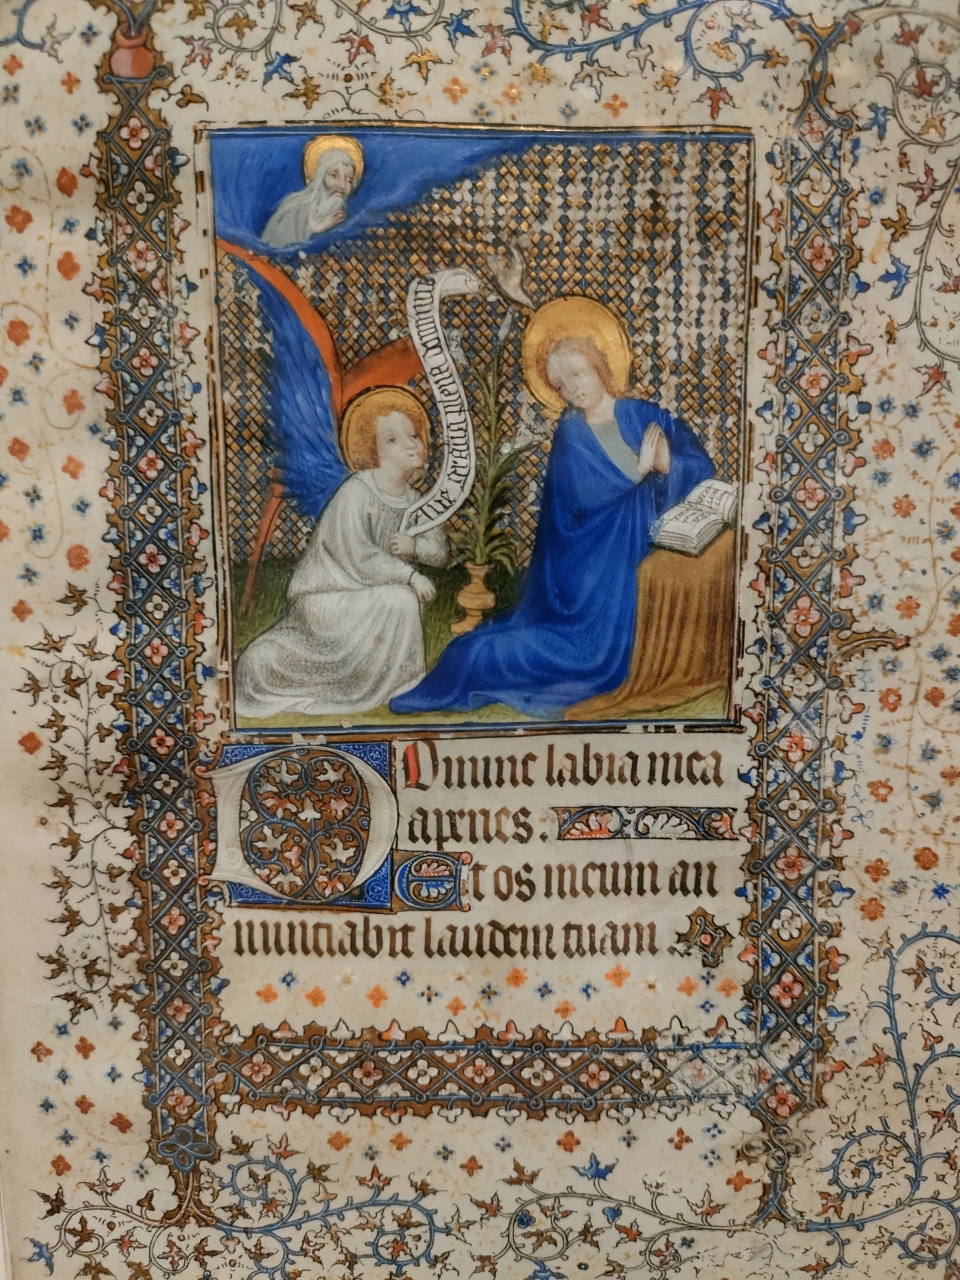 Aue gracia plena dominu
DOmine labia mea
aperies.
Et os meum an
nunciabit laudem tuam